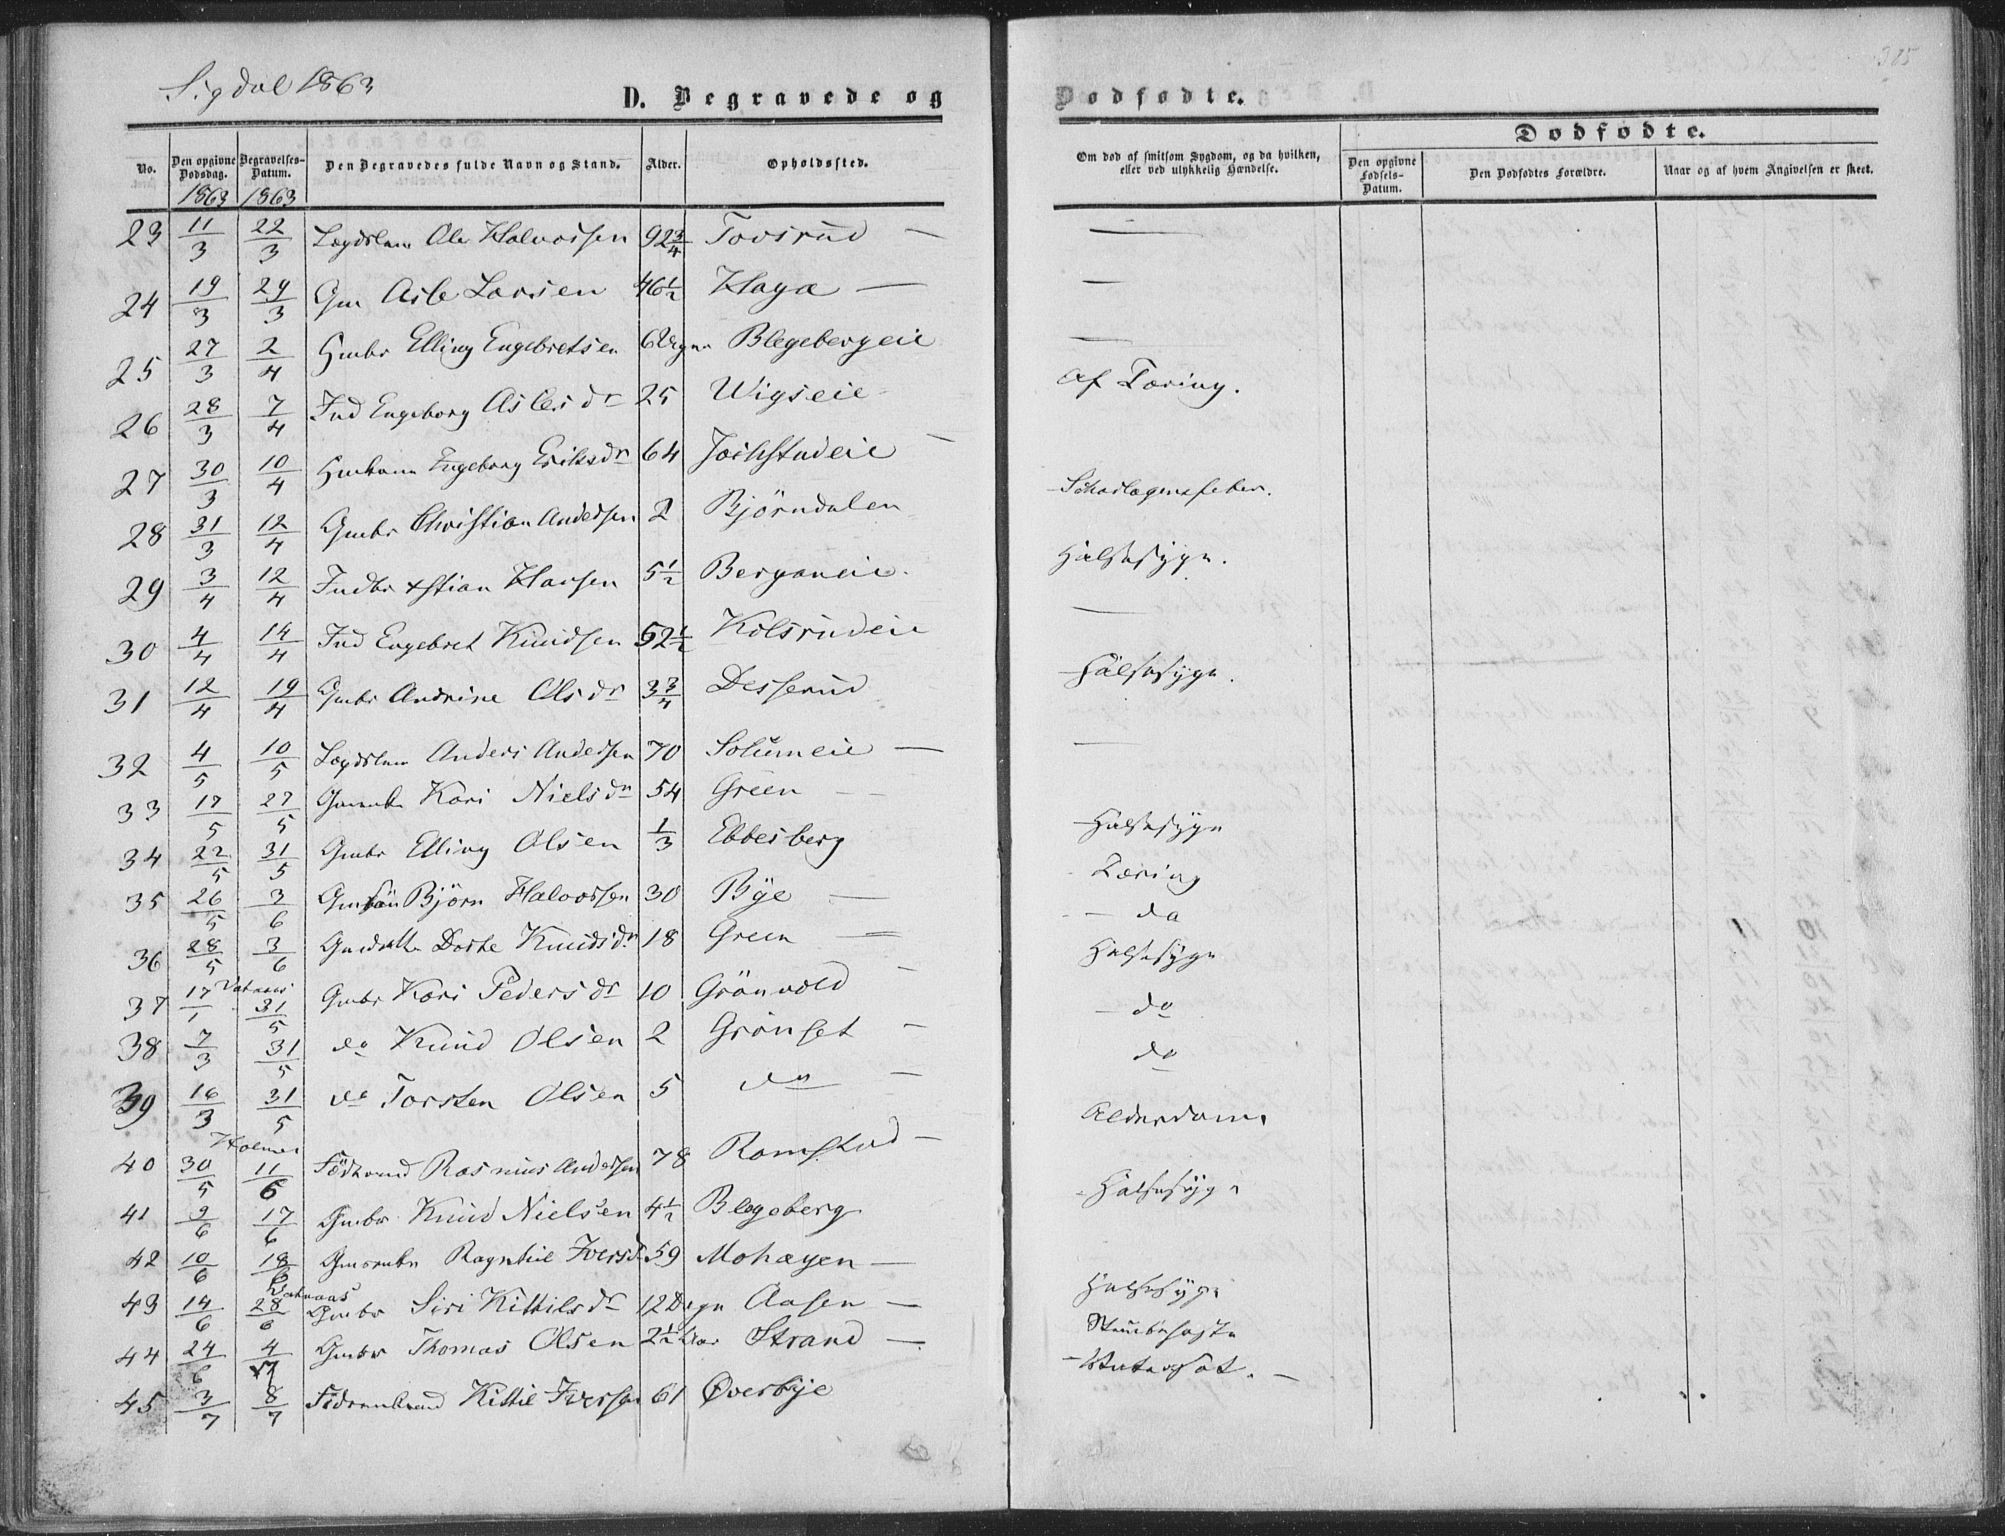 Sigdal 1863
385
D. Begravede og
Dødfødte.
Dødfødte.
No.
Den opgivne Dødsdag.
Begravelses-Datum.
Den Begravedes fulde Navn og Stand.
Alder.
Opholdssted.
Om død af smitsom Sygdom, og da hvilken, eller ved ulykkelig Hændelse.
Den opgivne Fødsels-Datum.
Den Dødfødtes Forældre.
Naar og af hvem Angivelsen er skeet.
1863 1863
23 11/3 22/3 Lægdslem Ole Halvorsen 92 3/4 Tovsrud — —
24 19/3 29/3 Gm Asle Larsen 46 1/2 Haga — —
25 27/3 2/4 Elling Engebretsen Blegebergeie —
26 28/3 7/4 Ind Engeborg Aslesdr 25 Wigseie Af Tæring.
27 30/3 10/4 Engeborg Eriksdr 64 —
28 31/3 12/4 Gmbr Christian Andersen 2 Bjørndalen Skarlagensfeber.
29 3/4 12/4 Indbr Xstian Hansen 5 1/2 Berganeie. Halsesyge.
30 4/4 14/4 Ind Engebret Knudsen 52 1/2 Kolsrudeie —
31 12/4 19/4 Gmbr Andrine Olsdr 3 3/4 Desserud Halsesyge.
32 4/5 10/5 Lægdslem Anders Andersen 70 Solumeie — —
33 17/5 27/5 Kari Nielsdr 54 Green —
34 22/5 31/5 Gmbr Elling Olsen 1/3 Ebbesberg Halsesyge
35 26/5 3/6 Gmsøn Bjørn Halvorsen 30 Bye — Tæring
36 28/5 3/6 Dorthe Knudsdr 18 Green — do
Vatnaas
37 17/1 31/5 Gmbr Kari Pedersdr 10 Grönvold — Halsesyge
38 7/3 31/5 do Knud Olsen 2 Grönset — do
39 16/3 31/5 do Torsten Olsen 5 do — do
Holmen
40 30/5 11/6 Rasmus Andersen 78 Ramstad — Alderdom
41 9/6 17/6 Gmbr Knud Nielsen 4 1/2 Blegeberg Halsesyge
42 10/6 18/6 Ragnhil Iversdr 59 Mohagen —
Vatnaas
43 14/6 28/6 Gmbr Siri Kittilsdr 12 Dage Aasen — Halsesyge
44 24/6 4/7 Gmbr Thomas Olsen 2 1/2 Aar Strand —
45 3/7 8/7 Kittil Iversen 61 Øverbye Vatersot. —